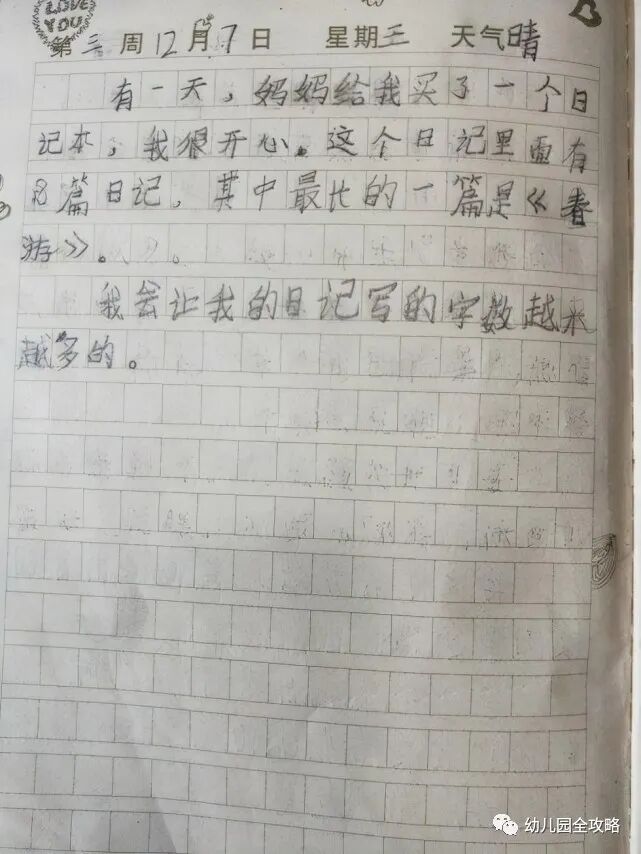 LOVE
YOU
第三周12月7日 星期三 天气晴
有一天，妈妈给我买了一个日
记本，我很开心。这个日记里面有
8篇日记，其中最长的一篇是《春
游》。
我会让我的日记写的字数越来
越多的。
幼儿园全攻略